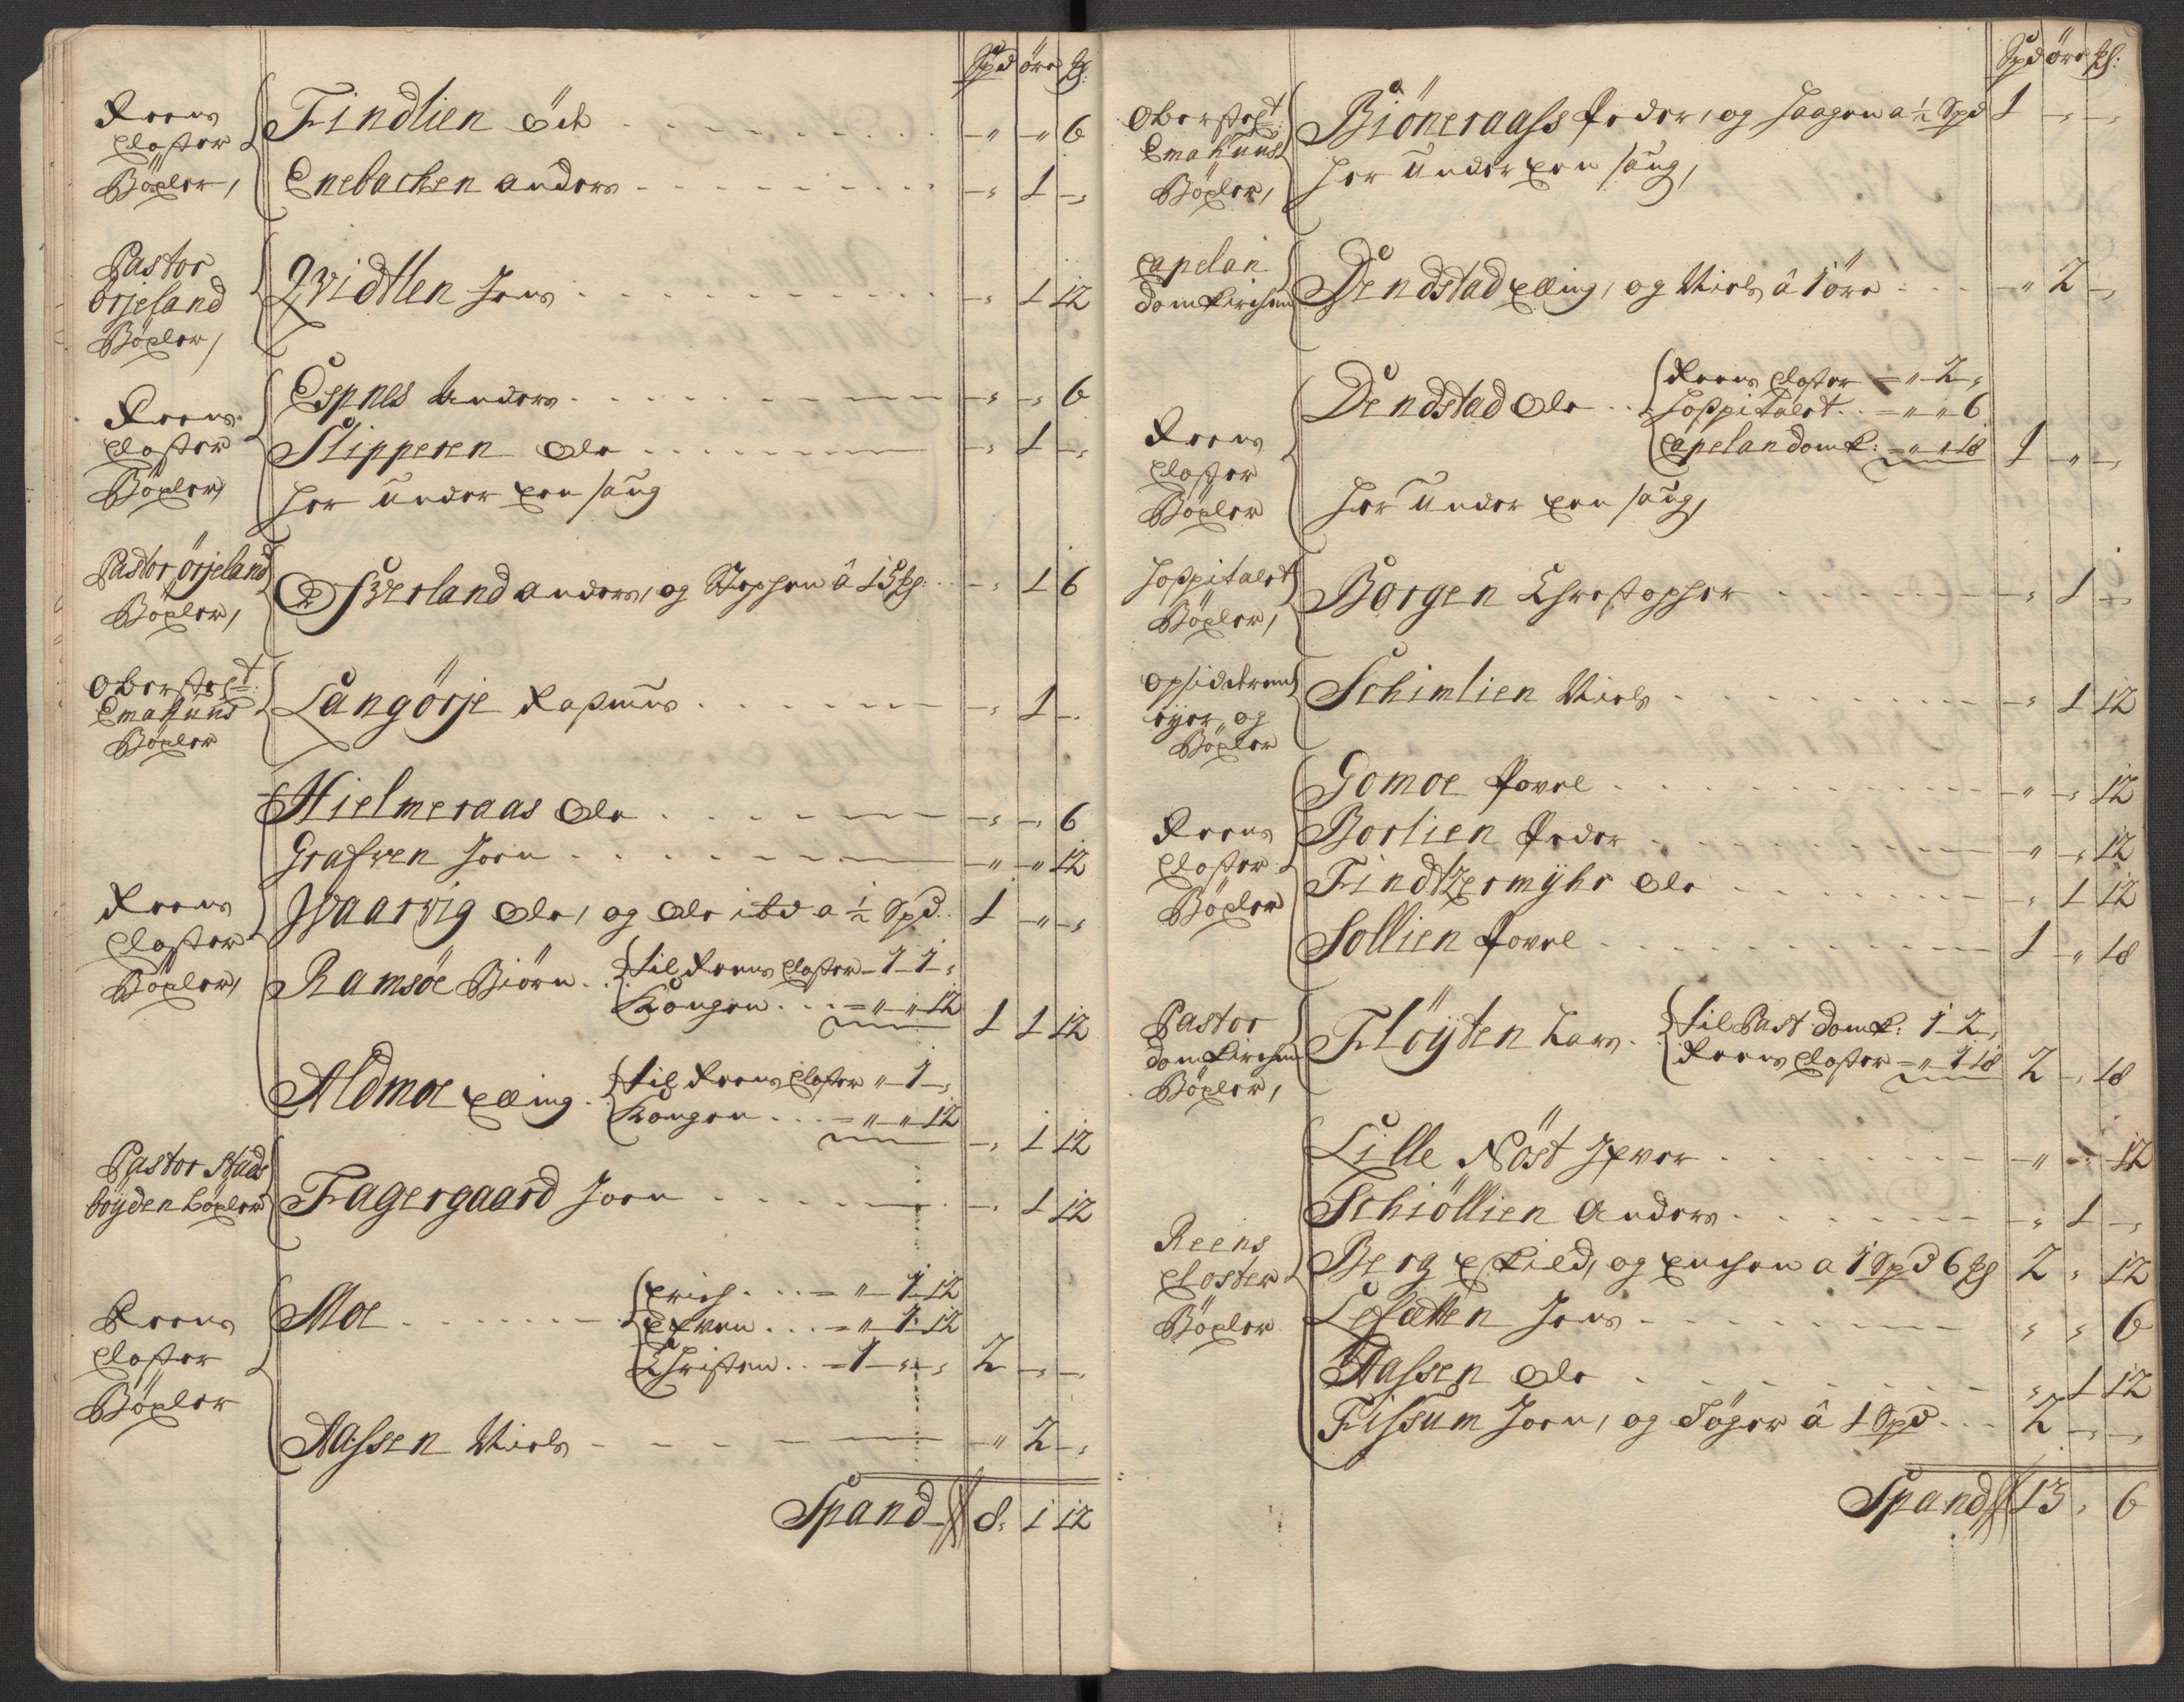 Spd öre ß:
Reens
Closter
Böxler,
Findlien öde - " - " 6
Enebachen anders - " 1 - "
Pastor
örjeland
Böxler,
Qvidtlen Jens - " 1 12
Reens
Closter
Böxler,
Espnes Anders - " - " 6
Slipperen Ole - " 1 - "
her under een saug
Pastor örjeland
Böxler,
Sverland anders, og Stephen â 15 ß: - " 1 6
Oberstelt:
Emahuus
Böxler
Langörje Rasmus - " 1 -
Reens
Closter
Böxler,
Hielmeraas Ole - " - " 6
Grafven Joen - " - " 12
Jvaarvig Ole, og Ole ibd a ½ Spd. 1 - " - "
Ramsöe Biörn. til Reens Closter - 1 - 1 -
Kongen . . . = " - " 12
1 1 12
Aldmoe Elling. til Reens Closter " 1 -
Kongen . . . = " - " 12
- " 1 12
Pastor Stads
böyden böxler
Fagergaard Joen - " 1 12
Reens
Closter
Böxler
Moe
Erich . . . = " - 1 - 12
Efven . . . = " - 1 - 12
Christen . . = 1 - " - " 2 - " - "
Aassen Niels - " 2 - "
Spand 8 " 1 12
Spd öre ß:
Oberstelt:
Emahuus
Böxler,
Biöneraass Peder, og Haagen a ½ Spd 1 - " - "
her under een saug,
Capelan
domkirchen
Dendstad Elling, og Niels â 1 öre - " 2 - "
Reens
Closter
Böxler
Dendstad Ole . . Reens Closter = " 2 "
Hospitalet . . = " " 6
Capelan domk: = " " 18 1 - " - "
her under een saug,
Hospitalet
Böxler,
Borgen Christopher - " 1 - "
eyer, og
Böxler
Schimlien Niels - " 1 12
Reens
Closter
Böxler
Gomoe Povel - " - " 12
Borlien Peder - " - " 12
Findtzermÿhr Ole - " 1 12
Sollien Povel 1 - " 18
Pastor
domkirchen
Böxler,
Flöyten Lars. til Past: domk: 1 - 2 -
Reens Closter = " 1 18 2 - " 18
Reens
Closter
Böxler
Lille Nöst Jfver - " - " 12
Schiöllien Anders - " 1 - "
Berg Eskild, og Enchen a 1 Spd 6 ß 2 " 12
Lefætten Jens " " 6
Aassen Ole " 1 12
Fissum Joen, og Söger â 1 Spd. 2 - " - "
Spand 13 " 6